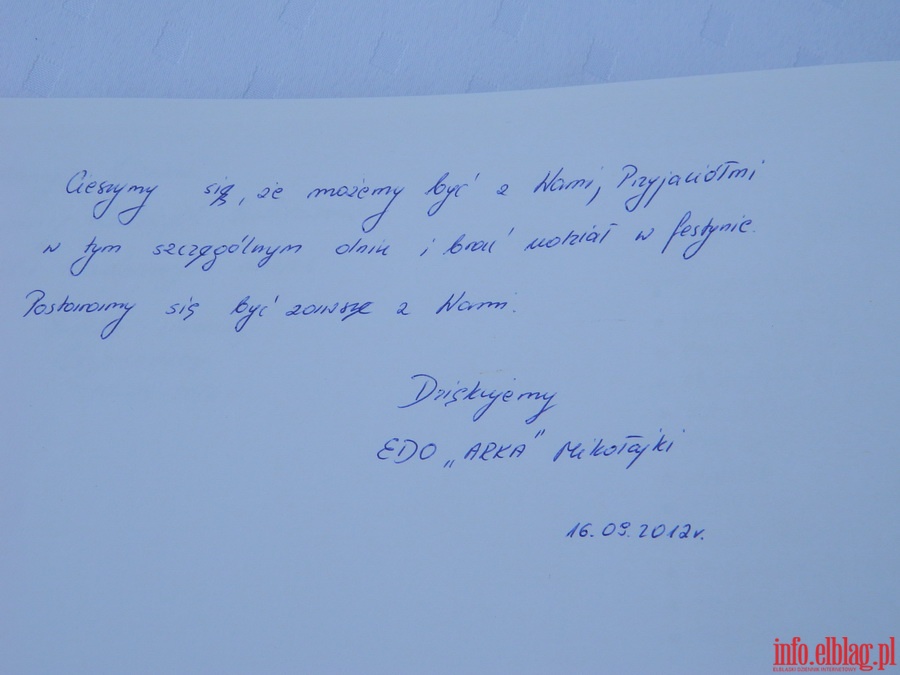 Cieszymy się, że możemy być z Wami, Przyjaciółmi
w tym szczególnym dniu i brać udział w festynie.
Postaramy się być zawsze z Wami.
Dziękujemy
EDO „ARKA” Mikołajki
16.09.2012r.
info.elblag.pl
ELBLĄSKI DZIENNIK INTERNETOWY